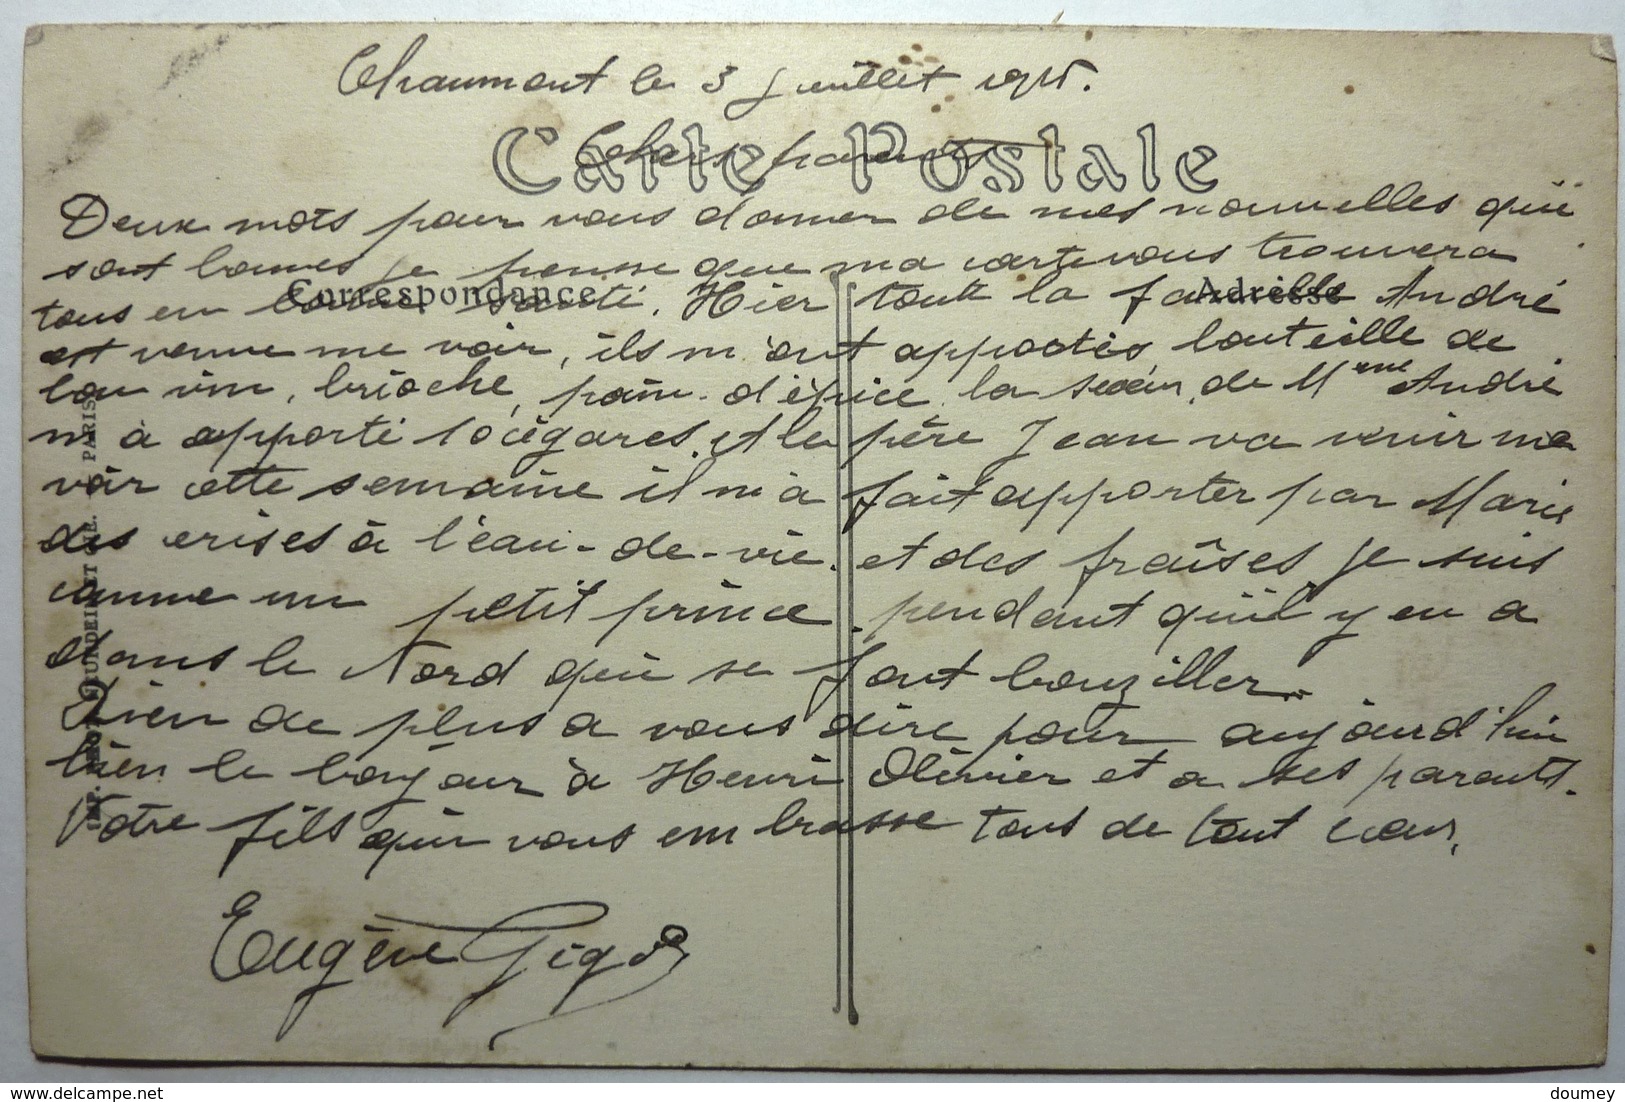 Chaumont le 3 Juillet 1915.
Carte Postale
Chers parents
Deux mots pour vous donner de mes nouvelles qui
sont bonnes je pense que ma carte vous trouvera
Correspondance
Adresse
tous en bonne santé. Hier toute la famille André
est venue me voir, ils m'ont apportés bouteille de
bon vin, brioche, pain-d'épice, la soeur de Mme André
m'à apporté 10 cigares. et le père Jean va venir me
voir cette semaine il m'a fait apporter par Marie
des cerises à l'eau-de-vie. et des fraises, je suis
comme un petit prince. pendant qu'il y en a
dans le Nord qui se font bouziller..
Rien de plus a vous dire pour aujourd'hui
bien le bonjour à Henri Olivier et a ses parents.
Votre fils qui vous embrasse tous de tout coeur.
Eugène Gigo
IMP. PARIS
delcampe.net
doumey